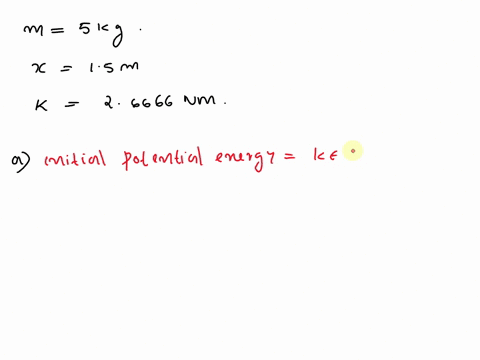 m = 5 kg.
x = 1.5 m
K = 2.6666 Nm.
a) initial potential energy = kE